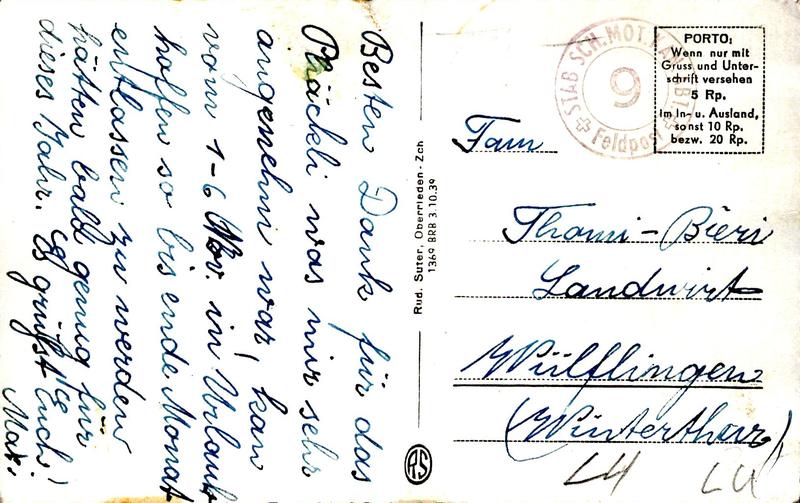 Besten Dank für das
Päckli was mir sehr
angenehm war, kan
vom 1-6 Nov. in Urlaub
hoffen so bis ende Monat
entlassen zu werden
hätten bald genug für
dieses Jahr. Es grüsst Euch
Max.
Rud. Suter, Oberrieden - Zch
1369 BRB 3.10.39
RS
STAB SCH. MOT. KAN. ABT.
9
Feldpost
PORTO:
Wenn nur mit
Gruss und Unter-
schrift versehen
5 Rp.
Im In- u. Ausland,
sonst 10 Rp.
bezw. 20 Rp.
Fam
Thomi-Bieri
Landwirt
Wülflingen
(Winterthur)
LU LU